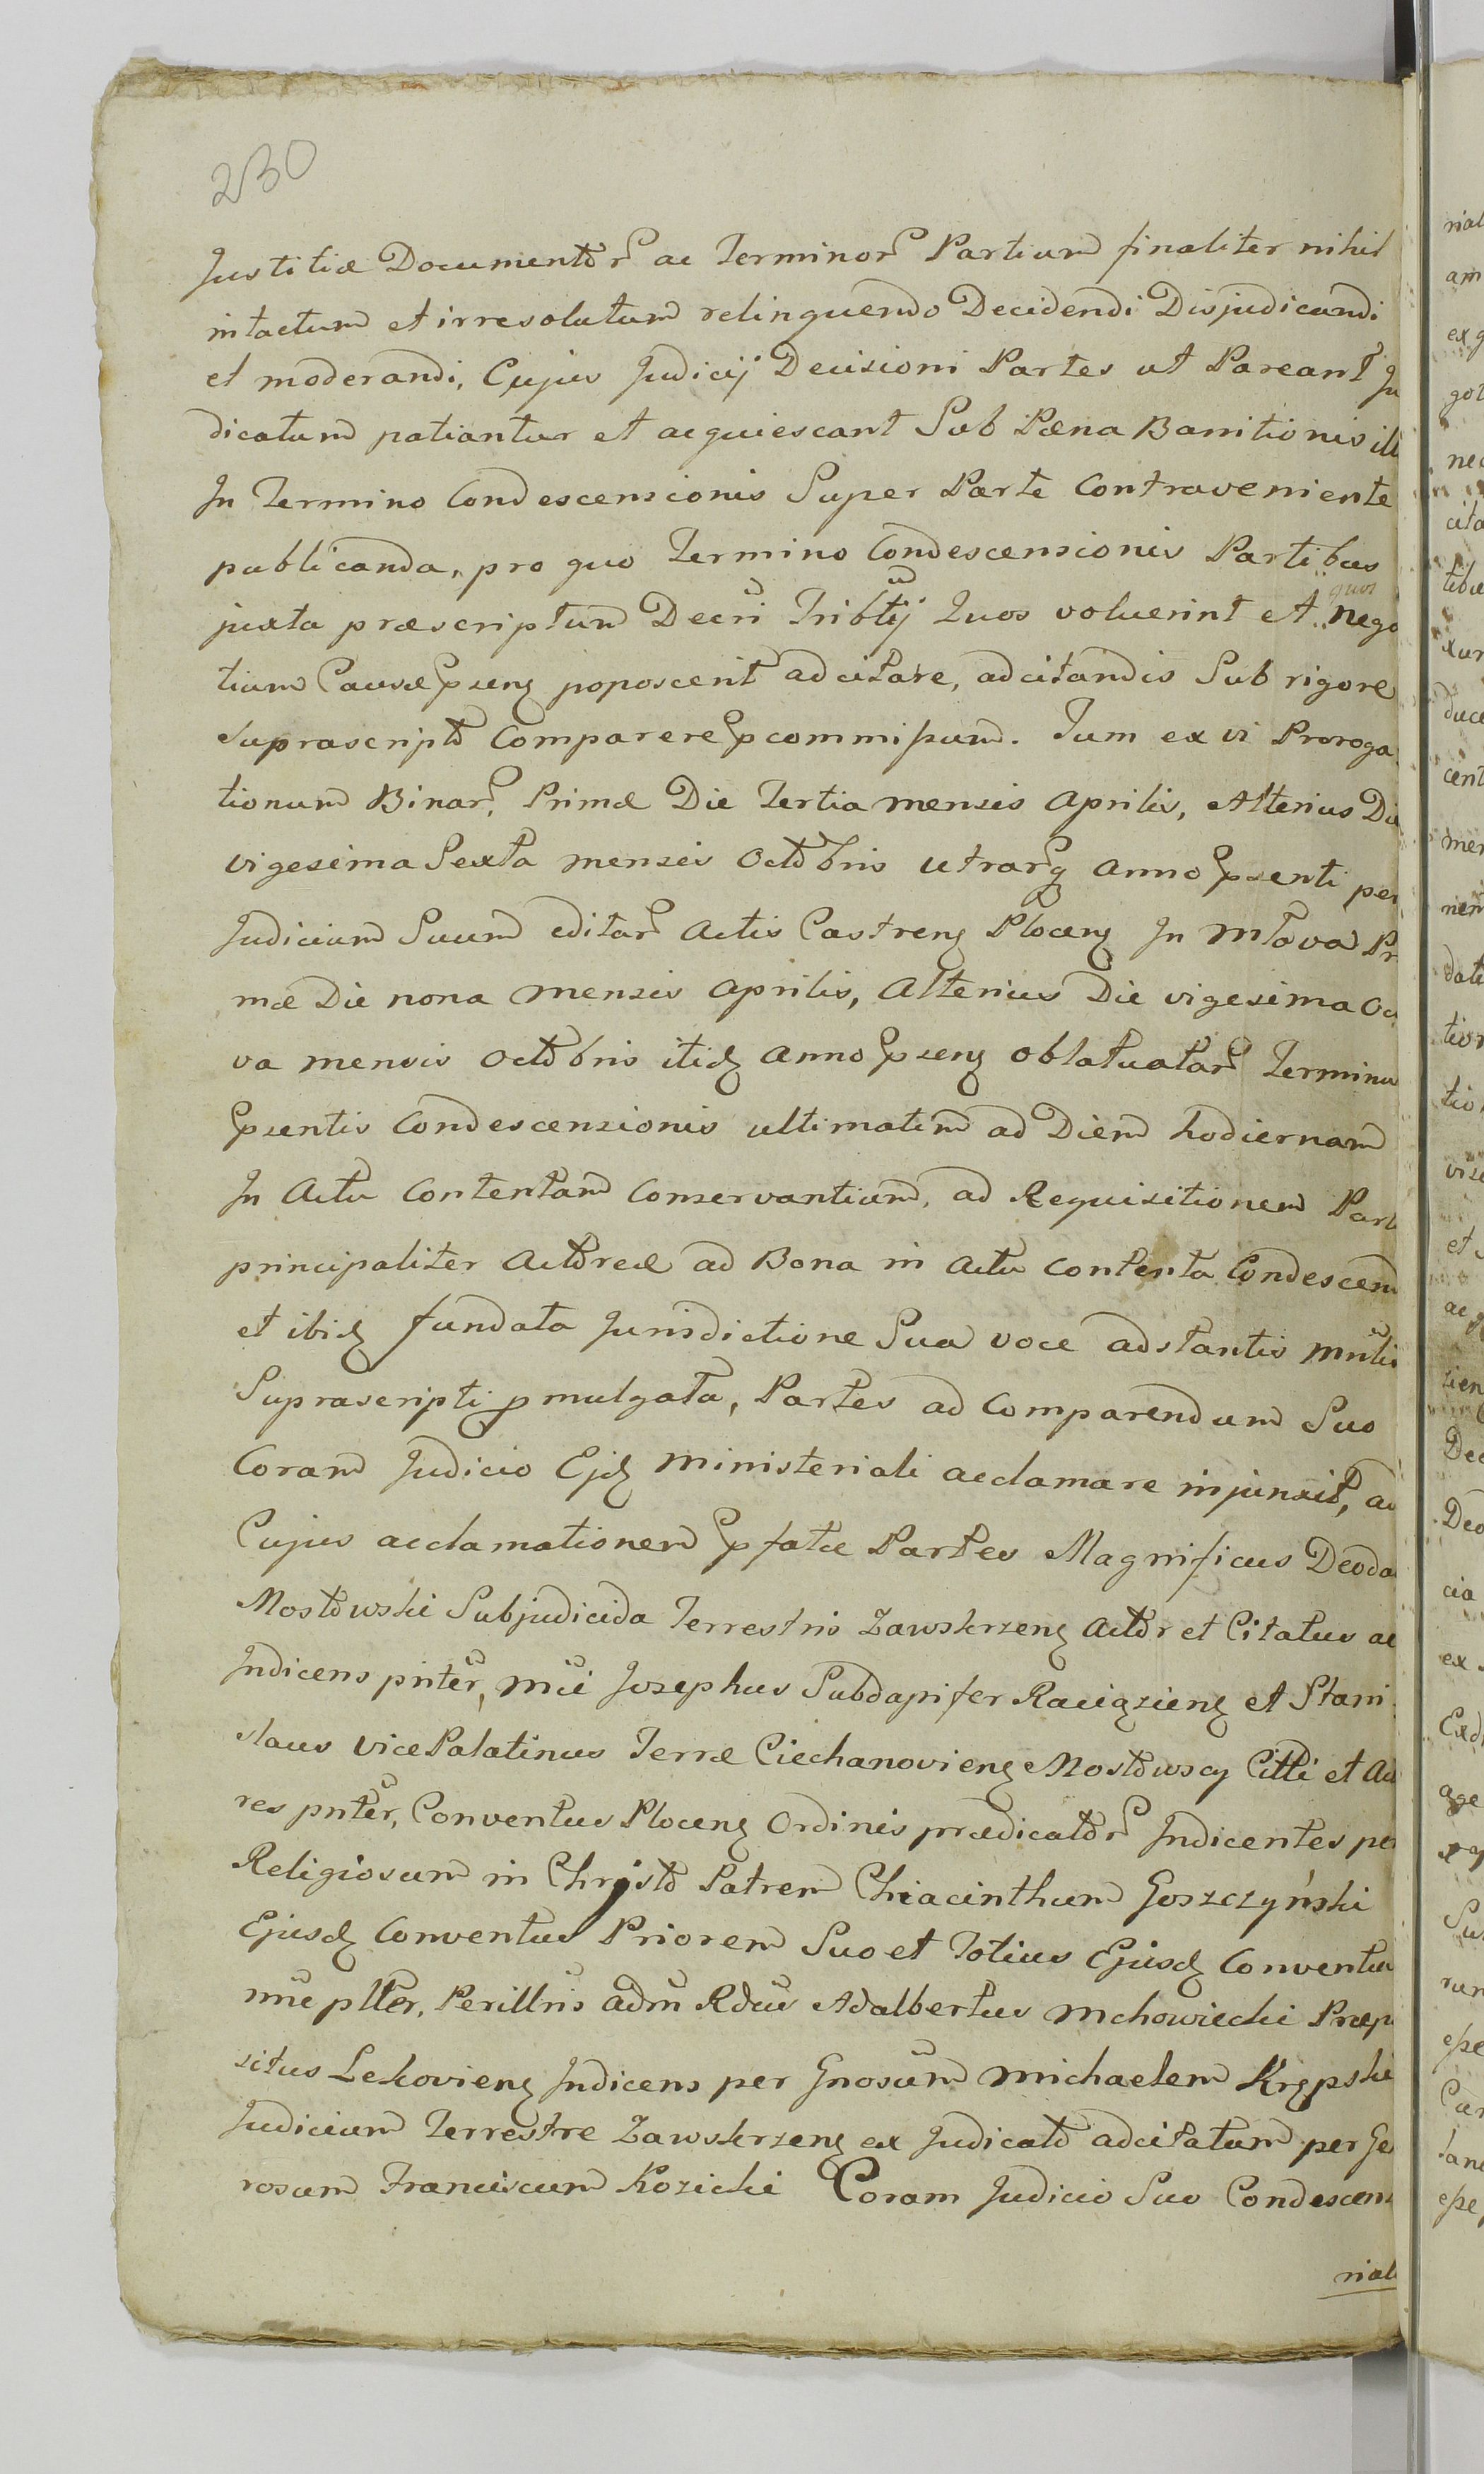 230
Justitiæ Documentor ac Terminor Partium finaliter nihil
intactum et irresolutum relinquendo Decidendi Disjudicandi
et moderandi, Cujus Judicij Decisioni Partes ut Pareant Ju
dicatum patiantur et acquiescant Sub Pæna Bannitionis ill
In Termino Condescensionis Super Parte Contraveniente
publicanda, pro quo Termino Condescensionis Partibus
quos
juxta præscriptum Decri Tribltij Quos voluerint et nego
tium Causæ pseng poposcerit adcitare, adcitandis Sub rigore
suprascripto Comparere pcommissum. Tum ex vi Proroga
tionum Binar, Primæ Die Tertia mensis Aprilis, Alterius Die
vigesima Sexta mensis Octobris utrarq Anno psenti per
Judicium Suum editar Actis Castreng Ploceng In Mlava Pri
mæ Die nona mensis Aprilis, Alterius Die vigesima Oc
va mensis Octobris itid Anno pseng oblatuatar Terminu
psentis Condescensionis ultimatim ad Diem hodiernam
In Actu Contentam Conservantium, ad Requisitionem Part
principaliter Actoreæ ad Bona in Actu Contenta Condescend
et ibid fundata Jurisdictione Sua voce adstantis Mnlis
Suprascripti pmulgata, Partes ad Comparendum Suo
Coram Judicio Ejd Ministeriali acclamare injunxit, ad
Cujus acclamationem pfatæ Partes Magnificus Deoda
Mostowski Subjudicida Terrestris Zawskrzeng Actor et Citatus ac
Indicens pnter, Mci Josephus Subdapifer Raciązieng et Stani
slaus vice Palatinus Terræ Ciechanovieng Mostowscy Citti et Acto
res pnter, Conventus Ploceng Ordinis prædicator Indicentes per
Religiosum in Christo Patrem Chiacinthum Goszczyński
Ejusd Conventus Priorem Suo et Totius Ejusd Conventus
nne plter, Perillris adm Rdus Adalbertus Mchowiecki Præp
situs Lekovieng Indicens per Gnosum Michaelem Krępski
Judicium Terrestre Zawskrzeng ex Judicato adcitatum per Ge
rosum Franciscum Kozicki Coram Judicio Suo Condescens
rial